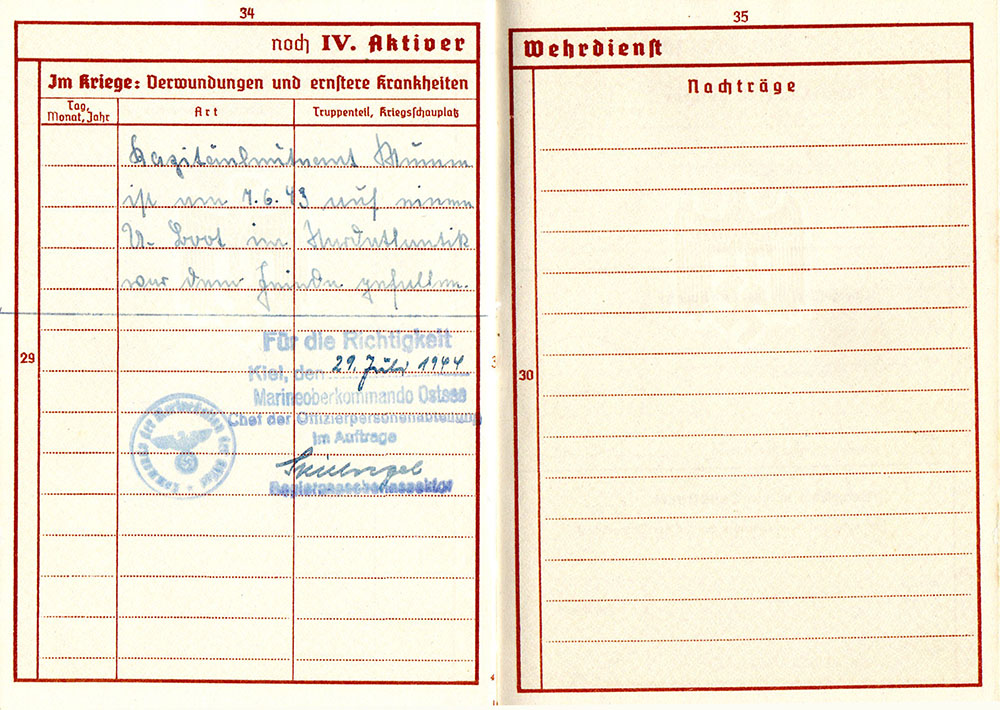 34
noch IV. Aktiver
Im Kriege: Verwundungen und ernstere Krankheiten
Tag, Monat, Jahr
Art
Truppenteil, Kriegsschauplatz
Kapitänleutnant
ist am 7.6.43 auf einem
U-Boot im Nordatlantik
vor dem Feinde gefallen.
29
Für die Richtigkeit
Kiel, den 29. Juli 1944
Marineoberkommando Ostsee
Chef der Offizierpersonalabteilung
Im Auftrage
Regierungsoberinspektor
35
Wehrdienst
Nachträge
30